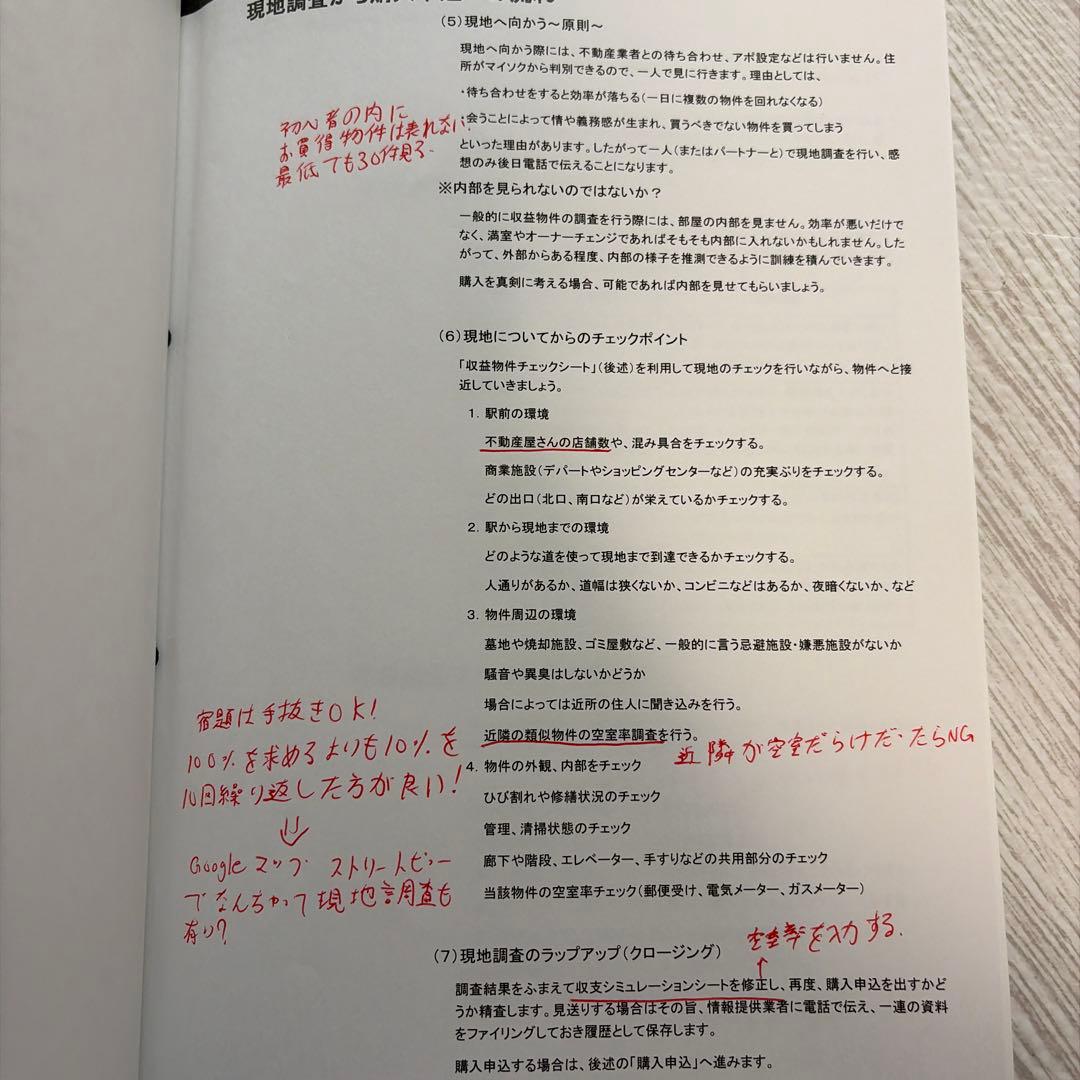 現地調査から
(5)現地へ向かう～原則～
現地へ向かう際には、不動産業者との待ち合わせ、アポ設定などは行いません。住
所がマイソクから判別できるので、一人で見に行きます。理由としては、
・待ち合わせをすると効率が落ちる(一日に複数の物件を回れなくなる)
会うことによって情や義務感が生まれ、買うべきでない物件を買ってしまう
といった理由があります。したがって一人(またはパートナーと)で現地調査を行い、感
想のみ後日電話で伝えることになります。
初心者の内に
お買得物件は表れない。
最低でも30件見る。
※内部を見られないのではないか？
一般的に収益物件の調査を行う際には、部屋の内部を見ません。効率が悪いだけで
なく、満室やオーナーチェンジであればそもそも内部に入れないかもしれません。した
がって、外部からある程度、内部の様子を推測できるように訓練を積んでいきます。
購入を真剣に考える場合、可能であれば内部を見せてもらいましょう。
(6)現地についてからのチェックポイント
「収益物件チェックシート」(後述)を利用して現地のチェックを行いながら、物件へと接
近していきましょう。
1. 駅前の環境
不動産屋さんの店舗数や、混み具合をチェックする。
商業施設(デパートやショッピングセンターなど)の充実ぶりをチェックする。
どの出口(北口、南口など)が栄えているかチェックする。
2. 駅から現地までの環境
どのような道を使って現地まで到達できるかチェックする。
人通りがあるか、道幅は狭くないか、コンビニなどはあるか、夜暗くないか、など
3. 物件周辺の環境
墓地や焼却施設、ゴミ屋敷など、一般的に言う忌避施設・嫌悪施設がないか
騒音や異臭はしないかどうか
場合によっては近所の住人に聞き込みを行う。
近隣の類似物件の空室率調査を行う。
近隣が空室だらけだったらNG
4. 物件の外観、内部をチェック
ひび割れや修繕状況のチェック
管理、清掃状態のチェック
廊下や階段、エレベーター、手すりなどの共用部分のチェック
当該物件の空室率チェック(郵便受け、電気メーター、ガスメーター)
宿題は手抜きOK!
100%を求めるよりも10%を
10回繰り返した方が良い!
Googleマップ ストリートビュー
でなんちゃって現地調査も
有り?
(7)現地調査のラップアップ(クロージング)
空室率を入力する。
調査結果をふまえて収支シミュレーションシートを修正し、再度、購入申込を出すかど
うか精査します。見送りする場合はその旨、情報提供業者に電話で伝え、一連の資料
をファイリングしておき履歴として保存します。
購入申込する場合は、後述の「購入申込」へ進みます。